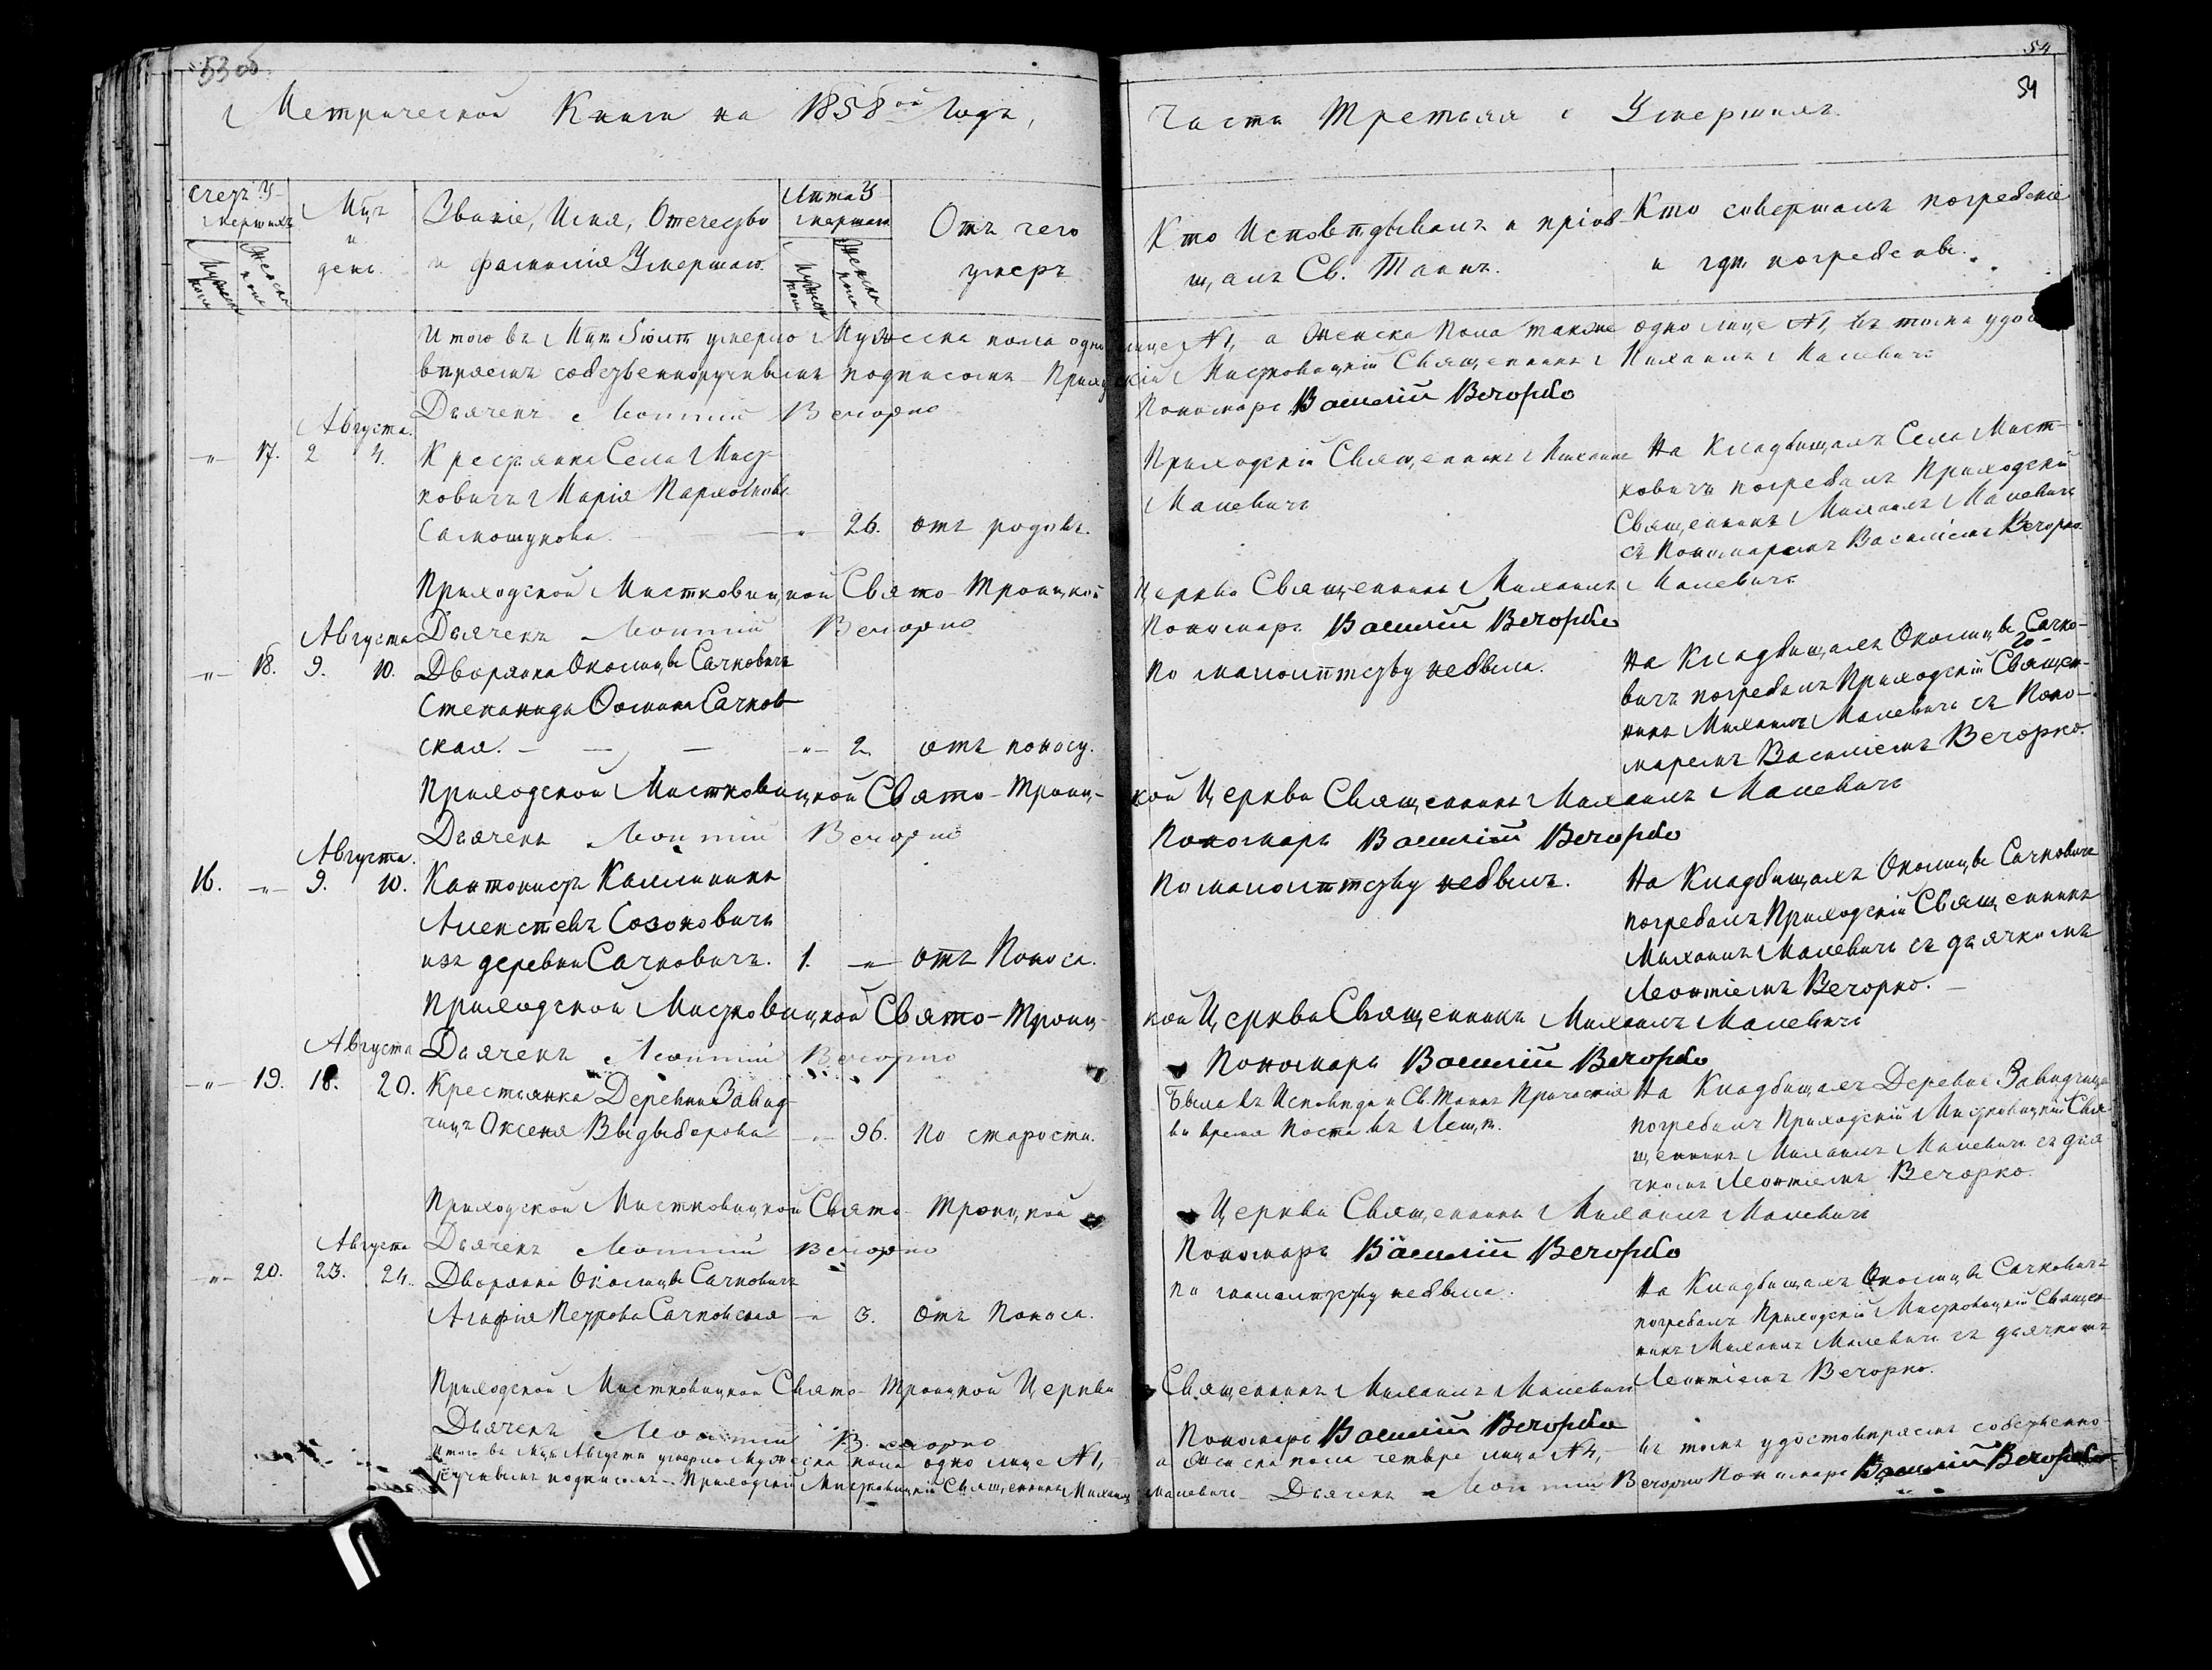 53 об.
54
54
Метрической Книги на 1858ой Годъ,
Части Третьяя о Умершихъ.
Счетъ У-
мершихъ
Мужеска
пола
Женска
пола
Мцъ
и
день.
Званіе, Имя, Отечество
и фамилія Умершаго.
Лѣта У
мершаго
Мужеска
пола
Женска
пола
Отъ чего
умеръ
Кто Исповѣдывалъ и пріоб-
щалъ Св. Таинъ.
Кто совершалъ погребеніе
и гдѣ погребены.
Итого въ Мцѣ Іюлѣ умерло Мужеска пола одно лице №1, а Женска Пола также одно лице №1, въ томъ удосто
вѣряемъ собственноручнымъ подписомъ – Приходскій Мистковицкій Священникъ Михаилъ Малевичъ
Дьячекъ Леонтій Вечорко
Пономарь Василій Вечорко
Августа.
-"- 17. 2 4. Крестьянка Села Мист-
ковичъ Марія Пархомова
Самошукова. - " 26. отъ родовъ.
Приходскій Священникъ Михаилъ
Малевичъ
На Кладбищахъ Села Мист-
ковичъ погребалъ Приходскій
Священникъ Михаилъ Малевичъ
съ Пономаремъ Василіемъ Вечорко.
Приходской Мистковицкой Свято-Троицкой Церкви Священникъ Михаилъ Малевичъ
Дьячекъ Леонтій Вечорко
Пономарь Василій Вечорко
Августа
-"- 18. 9. 10. Дворянка Околицы Сачковичъ
Степанида Сачков-
ская. - - - -"- 2. отъ поносу.
По малолѣтству небыла.
На Кладбищахъ Околицы Сачко-
вичъ погребалъ Приходскій Священ-
никъ Михаилъ Малевичъ съ Поно-
маремъ Василіемъ Вечорко.
Приходской Мистковицкой Свято-Троиц-
кой Церкви Священникъ Михаилъ Малевичъ
Дьячекъ Леонтій Вечорко
Пономарь Василій Вечорко
Августа.
16. -"- 9. 10. Кантонистъ Каллиникъ
Алексѣевъ Созоновичъ
изъ деревни Сачковичъ. 1. -"- отъ Поноса.
По малолѣтству небылъ.
На Кладбищахъ Околицы Сачковичъ
погребалъ Приходскій Священникъ
Михаилъ Малевичъ съ дьячкомъ
Леонтіемъ Вечорко. –
Приходской Мистковицкой Свято-Троиц-
кой Церкви Священникъ Михаилъ Малевичъ
Дьячекъ Леонтій Вечорко
Пономарь Василій Вечорко
Августа
-"- 19. 18. 20. Крестьянка Деревни Завид-
чицъ Оксеня Выдыборова -"- 96. по старости.
Была въ Исповѣди и Св. Таинъ Причастія
во время Поста въ Лещѣ.
На Кладбищахъ Деревни Завидчицъ
погребалъ Приходскій Мистковицкій Свя-
щенникъ Михаилъ Малевичъ съ дья-
чкомъ Леонтіемъ Вечорко.
Приходской Мистковицкой Свято Троицкой
Церкви Священникъ Михаилъ Малевичъ
Дьячекъ Леонтій Вечорко
Пономарь Василій Вечорко
Августа
-"- 20. 23. 24. Дворянка Околицы Сачковичъ
Агафія Петрова Сачковская -"- 3. отъ Поноса.
По малолѣтству небыла.
На Кладбищахъ Околицы Сачковичъ
погребалъ Приходскій Мистковицкій Священ-
никъ Михаилъ Малевичъ съ дьячкомъ
Леонтіемъ Вечорко.
Приходской Мистковицкой Свято-Троицкой Церкви
Священникъ Михаилъ Малевичъ
Дьячекъ Леонтій Вечорко
Пономарь Василій Вечорко
Итого въ Мцѣ Августѣ умерло Мужеска пола одно лице №1, а Женска пола четыре лица №4, – въ томъ удостовѣряемъ собственно-
ручнымъ подписомъ – Приходскій Мистковицкій Священникъ Михаилъ Малевичъ Дьячекъ Леонтій Вечорко Пономарь Василій Вечорко